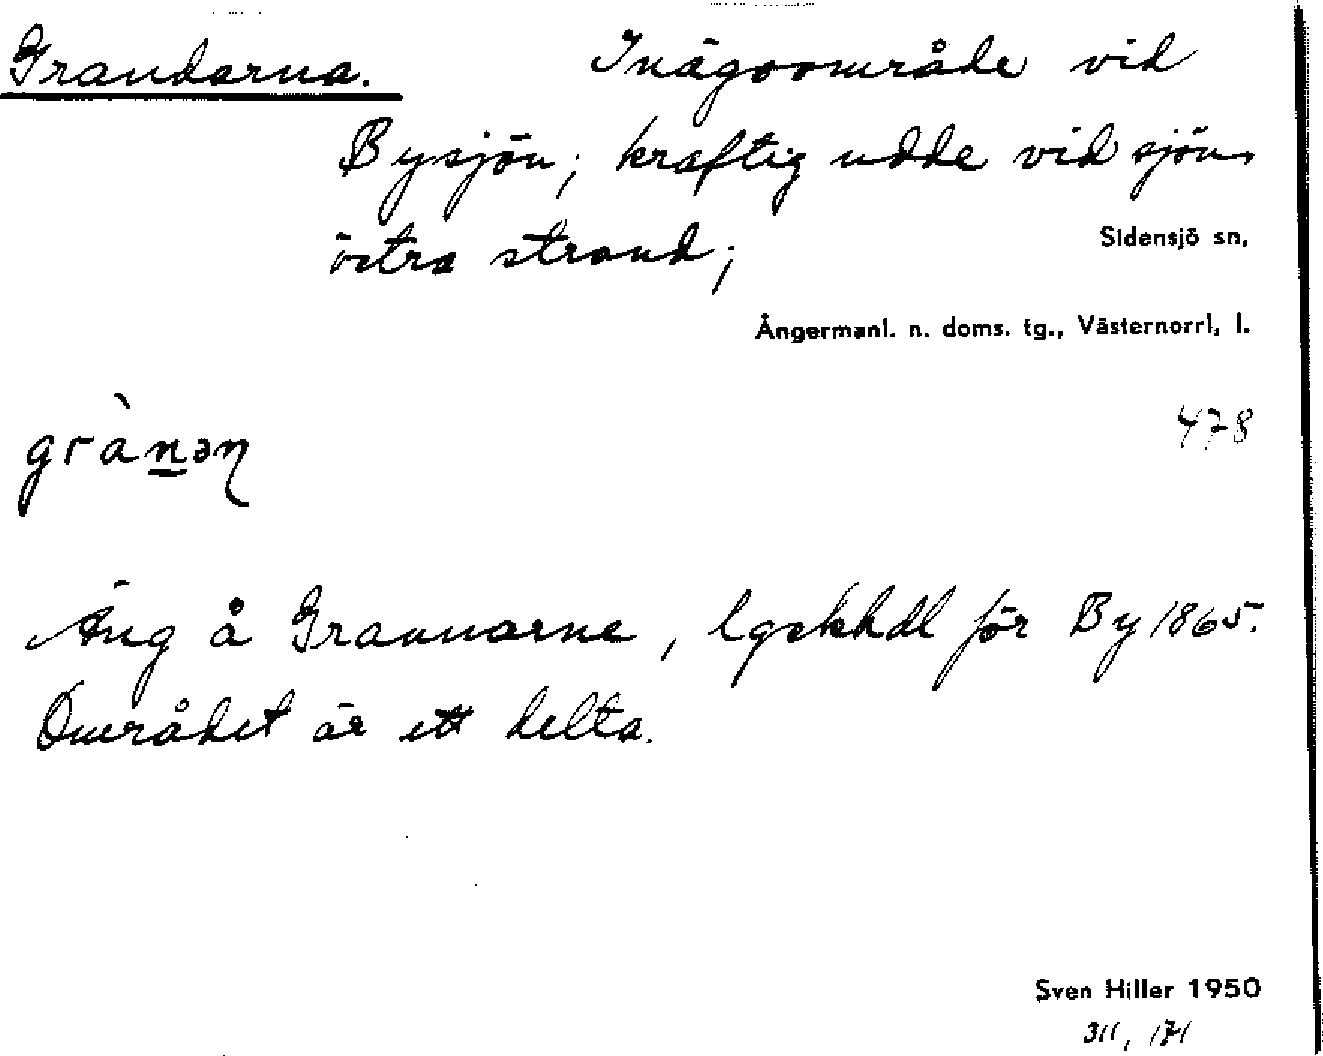 Grandarna. Inägoområde vid
Bysjön; kraftig udde vid sjöns
östra strand;
Sidensjö sn,
Ångermanl. n. doms. tg., Västernorrl, l.
478
grànən
Äng å Grannarne, lgskhdl för By 1865.
Området är ett delta.
Sven Hiller 1950
311, 171